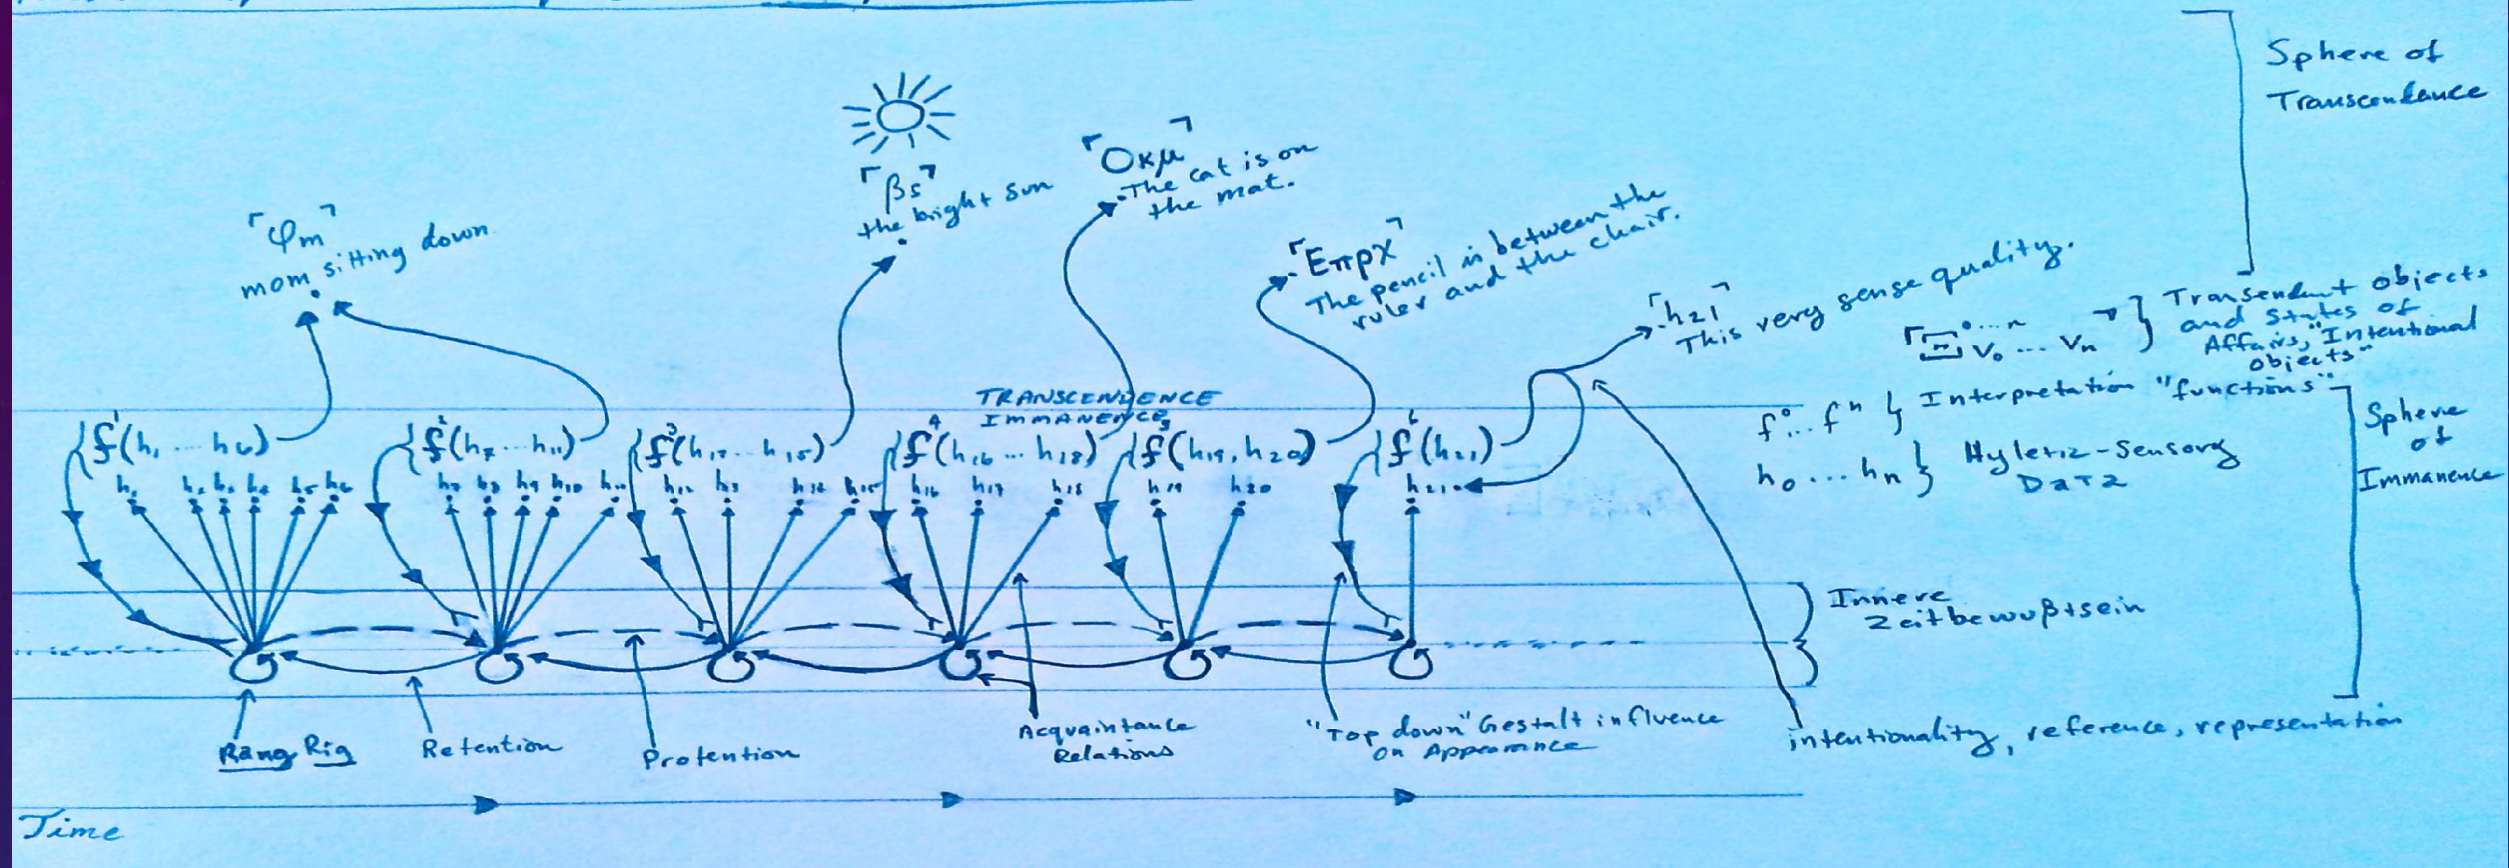 Sphere of
Transcendance
⌜Oκμ⌝
The cat is on
the mat.
⌜βs⌝
the bright sun
⌜φm⌝
mom sitting down
⌜Eπρχ⌝
The pencil is between the
ruler and the chair.
⌜h21⌝
This very sense quality.
⌜Ξ⁰···ⁿ v₀ ... vₙ⌝ } Transendent objects
and States of
Affairs, "Intentional
objects"
TRANSCENDENCE
IMMANENCE
f⁰...fⁿ } Interpretation "functions"
h₀...hₙ } Hyletiz-Sensory
DaTa
Sphere
of
Immanence
{f¹(h₁ ... h₆) {f²(h₇ ... h₁₁) {f³(h₁₂ ... h₁₅) {f⁴(h₁₆ ... h₁₈) {f⁵(h₁₉, h₂₀) {f⁶(h₂₁)
h₁ h₂ h₃ h₄ h₅ h₆ h₇ h₈ h₉ h₁₀ h₁₁ h₁₂ h₁₃ h₁₄ h₁₅ h₁₆ h₁₇ h₁₈ h₁₉ h₂₀ h₂₁
Innere
Zeitbewußtsein
Rang Rig
Retention
Protention
Acquaintance
Relations
"Top down" Gestalt influence
on Appearance
intentionality, reference, representation
Time